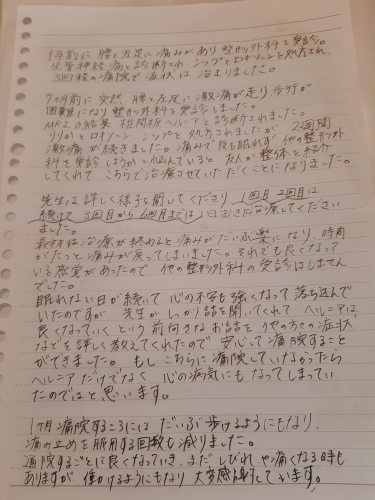 1年前に腰と左足に痛みがあり整形外科を受診。
坐骨神経痛と診断され シップとロキソニンを処方され、
3回程の通院で症状は治まりました。
7ヶ月前に突然、腰と左足に激痛が走り歩行が
困難になり整形外科を受診しました。
MRIの結果 椎間板ヘルニアと診断されました。
リリカとロキソニン、シップと処方されましたが 2週間
激痛が続きました。痛みで夜も眠れず 他の整形外
科を受診しようかと悩んでいると 友人が整体を紹介
してくれて こちらで治療させていただくことになりました。
先生は詳しく様子を聞いてくださり 1回目 2回目は
続けて 3回目から6回目までは 1日おきに治療してください
ました。
最初は治療が終わると痛みがだいぶ楽になり、時間
がたつと痛みが戻ってしまいました。それでも良くなって
いる感覚があったので 他の整形外科の受診はしません
でした。
眠れない日が続いて 心の不安も強くなって落ち込んで
いたのですが 先生がしっかり話を聞いてくれて ヘルニアは
良くなっていくという前向きなお話を 他の方々の症状
などを詳しく教えてくれたので 安心して通院すること
ができました。もし こちらに通院していなかったら
ヘルニアだけでなく 心の病気にも なってしまってい
たのではと思います。
1ヶ月通院するころには だいぶ歩けるようにもなり、
痛み止めを服用する回数も減りました。
通院するごとに良くなっていき、まだ しびれや痛くなる時も
ありますが 働けるようにもなり 大変感謝しています。